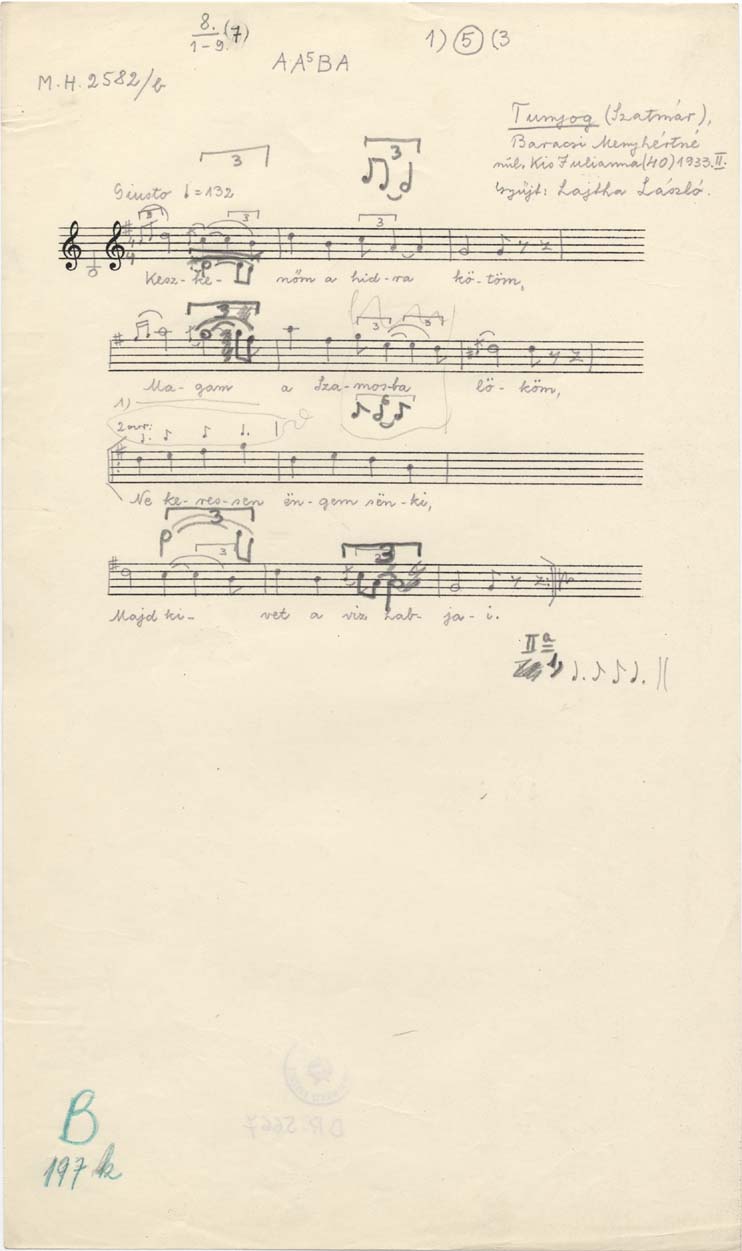 8.
1-9. (7)
1) 5 (3
A A⁵ B A
M.H. 2582/b
Tunyog (Szatmár),
Baracsi Menyhértné
szül. Kis Julianna (40) 1933.II.
Gyűjt: Lajtha László.
3
3
Giusto ♩=132
3 3 3
Kesz-ke- nőm a hid-ra kö-töm,
3
3 3
Ma-gam a Sza-mos-ba lö-köm,
1)
2 var:
Ne ke-res-sen ën-gem sën-ki,
3
3 3
Majd ki- vet a viz hab-ja-i.
IIa
1)
B
197 k